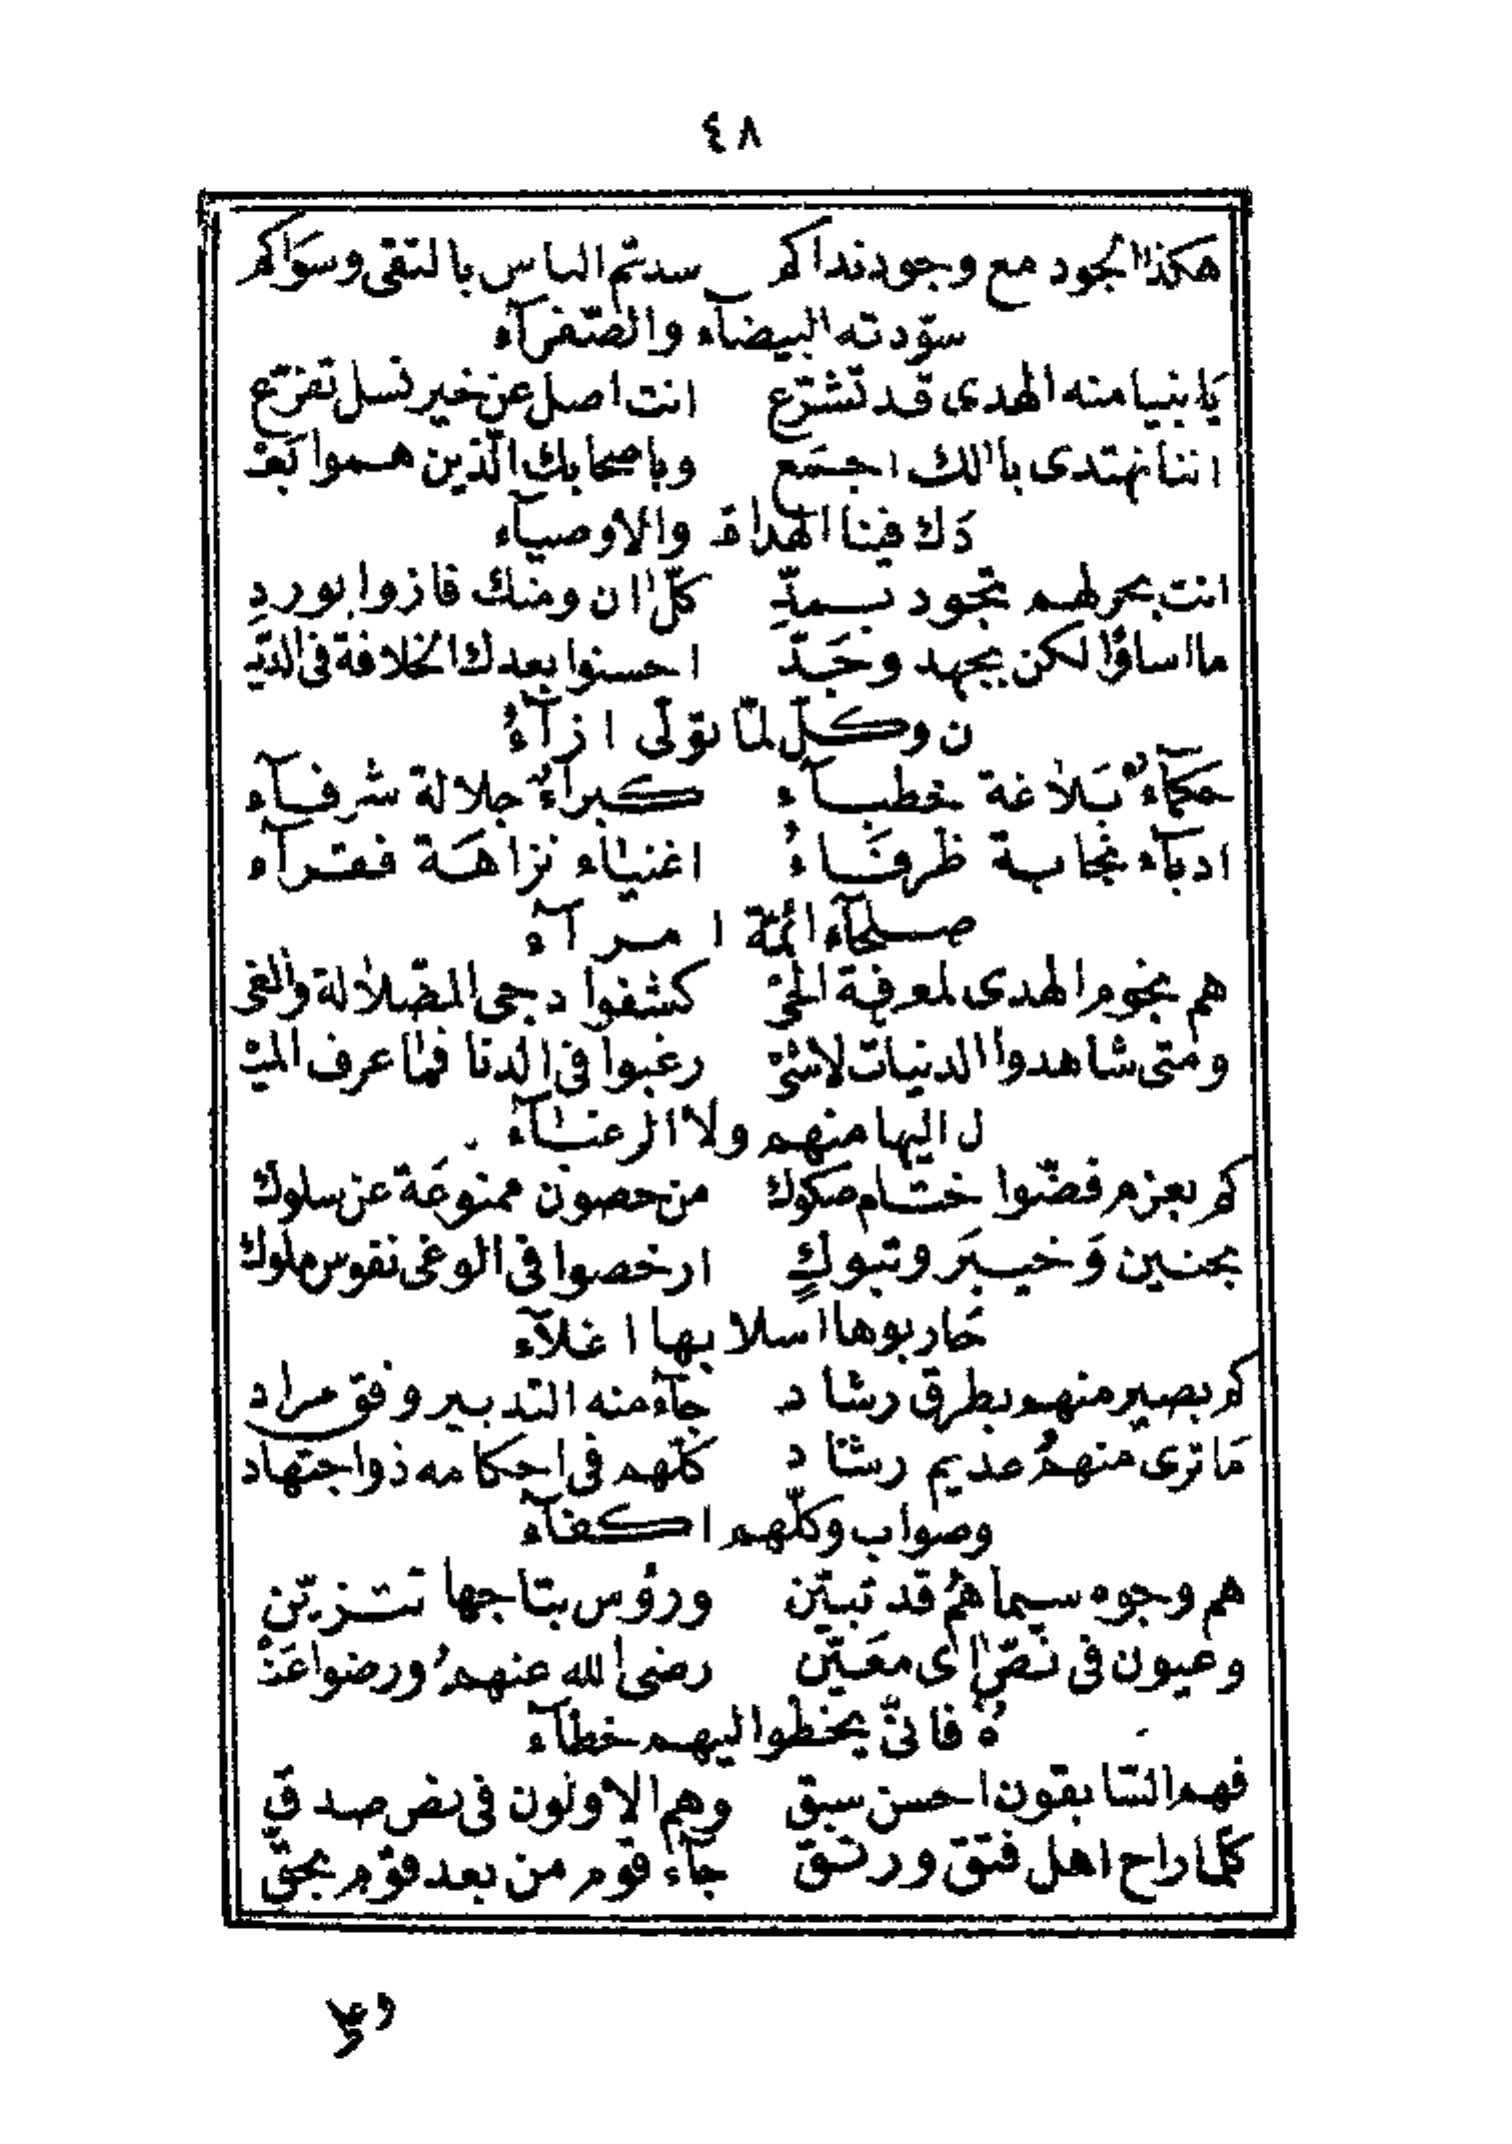 ٤٨
هكذا الجود مع وجود نداكم سدتم الناس بالتقى وسَواكم
سوّدته البيضآء والصّفرآء
يَا نبيا منه الهدى قد تشرّع انت اصل عن خير نسل تفرّع
اننا نهتدى باالك اجمَع وباصحابك الّذين همو ابَعْ
دَك فينا الهداة والاوصيآء
انت بحر لهم بجود يسمدِّ كلّ اان ومنك فازوا بوردِ
ما اساؤا لكن بجهد وجَدّ احسنوا بعدك الخلافة فى الدّيـ
ن وكلّ لمّا تولّى ازآءُ
حكمآءُ بَلاغة خطبآء كبرآءُ جلالة شرفآء
ادبآء نجابة ظرفَاءُ اغنياء نزاهَة فقرآء
صلحآء ائمّة امرآء
هم نجوم الهدى لمعرفة الحىْ كشفوا دجى الضّلالة والغى
ومتى شاهدوا الدنيات لاشىْ رغبوا فى الدنا فما عرف الميْـ
ل اليها منهم ولا الرغبآء
كم بعزم فضّوا ختام صكوك من حصون ممنوعَة عن سلوك
بحنين وَخيبَر وتبوكٍ ارخصوا فى الوغى نفوس ملوك
حَاربوها اسلابها اغلآء
كم بصير منهم بطرق رشاد جآء منه التدبير وفق مراد
مَا ترى منهمُ عديم رشاد كلّهم فى احكامه ذو اجتهاد
وصواب وكلّهم اكفآء
هم وجوه سيماهمُ قد تبيّن ورؤس بتاجها تتزيّن
وعيون فى نصّ اى معَيّن رضى الله عنهمُ ورضوا عَنْـ
ـهُ فانّى يخطوا اليهم خطآء
فهم السّابقون احسن سبق وهم الاوّلون فى نص صدقِ
كلّما راح اهل فتق ورتق جآء قوم من بعد قوم بحقّ
وعلى